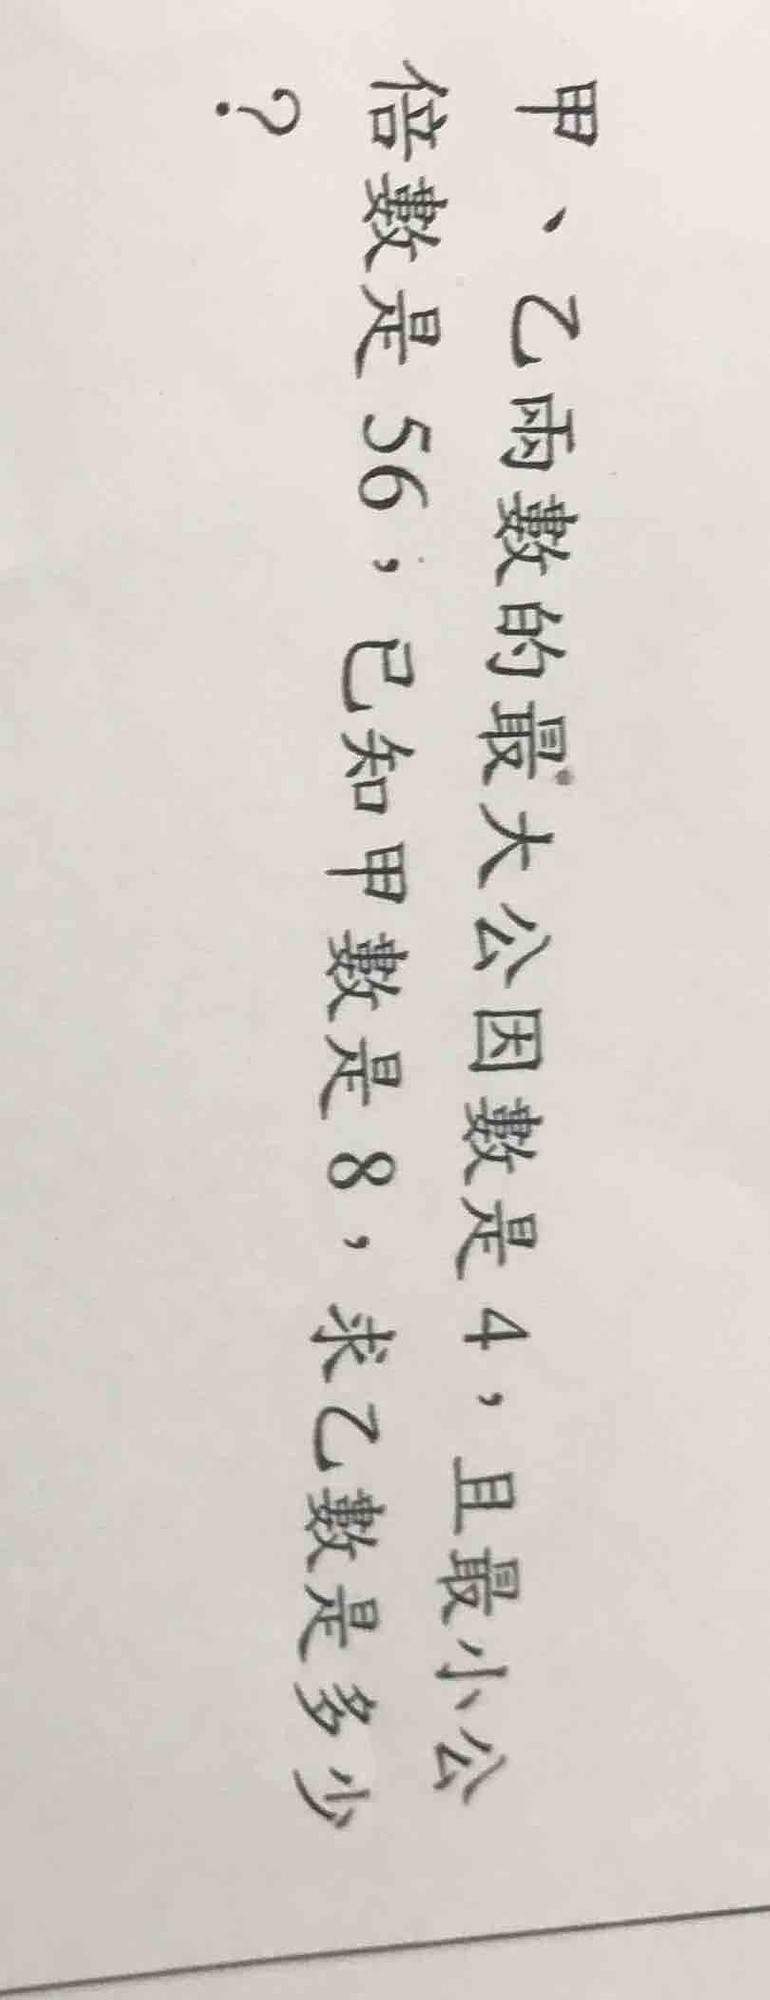 甲、乙兩數的最大公因數是4,且最小公
倍數是56,已知甲數是8,求乙數是多少
?